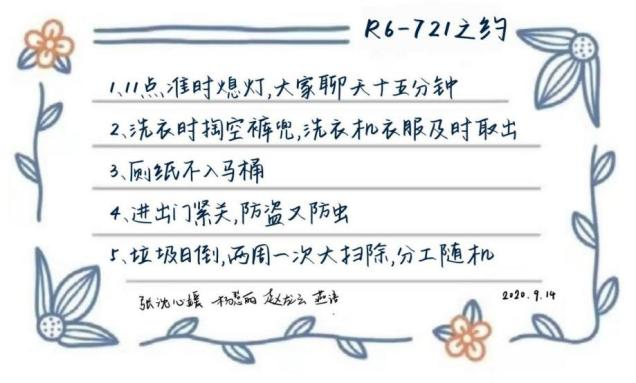 R6-721之约
1、11点准时熄灯,大家聊天十五分钟
2、洗衣时掏空裤兜,洗衣机衣服及时取出
3、厕纸不入马桶
4、进出门紧关,防盗又防虫
5、垃圾日倒,两周一次大扫除,分工随机
张沈心媛 赵龙云 燕语 2020.9.14